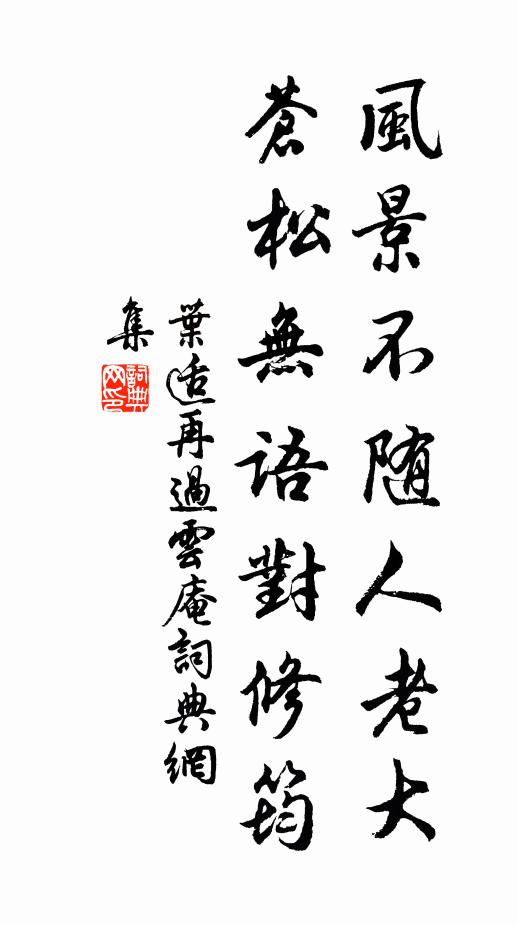 風景不随人老大
蒼松無語對修筠
葉适再過雲庵詞典網
集
詞典网印